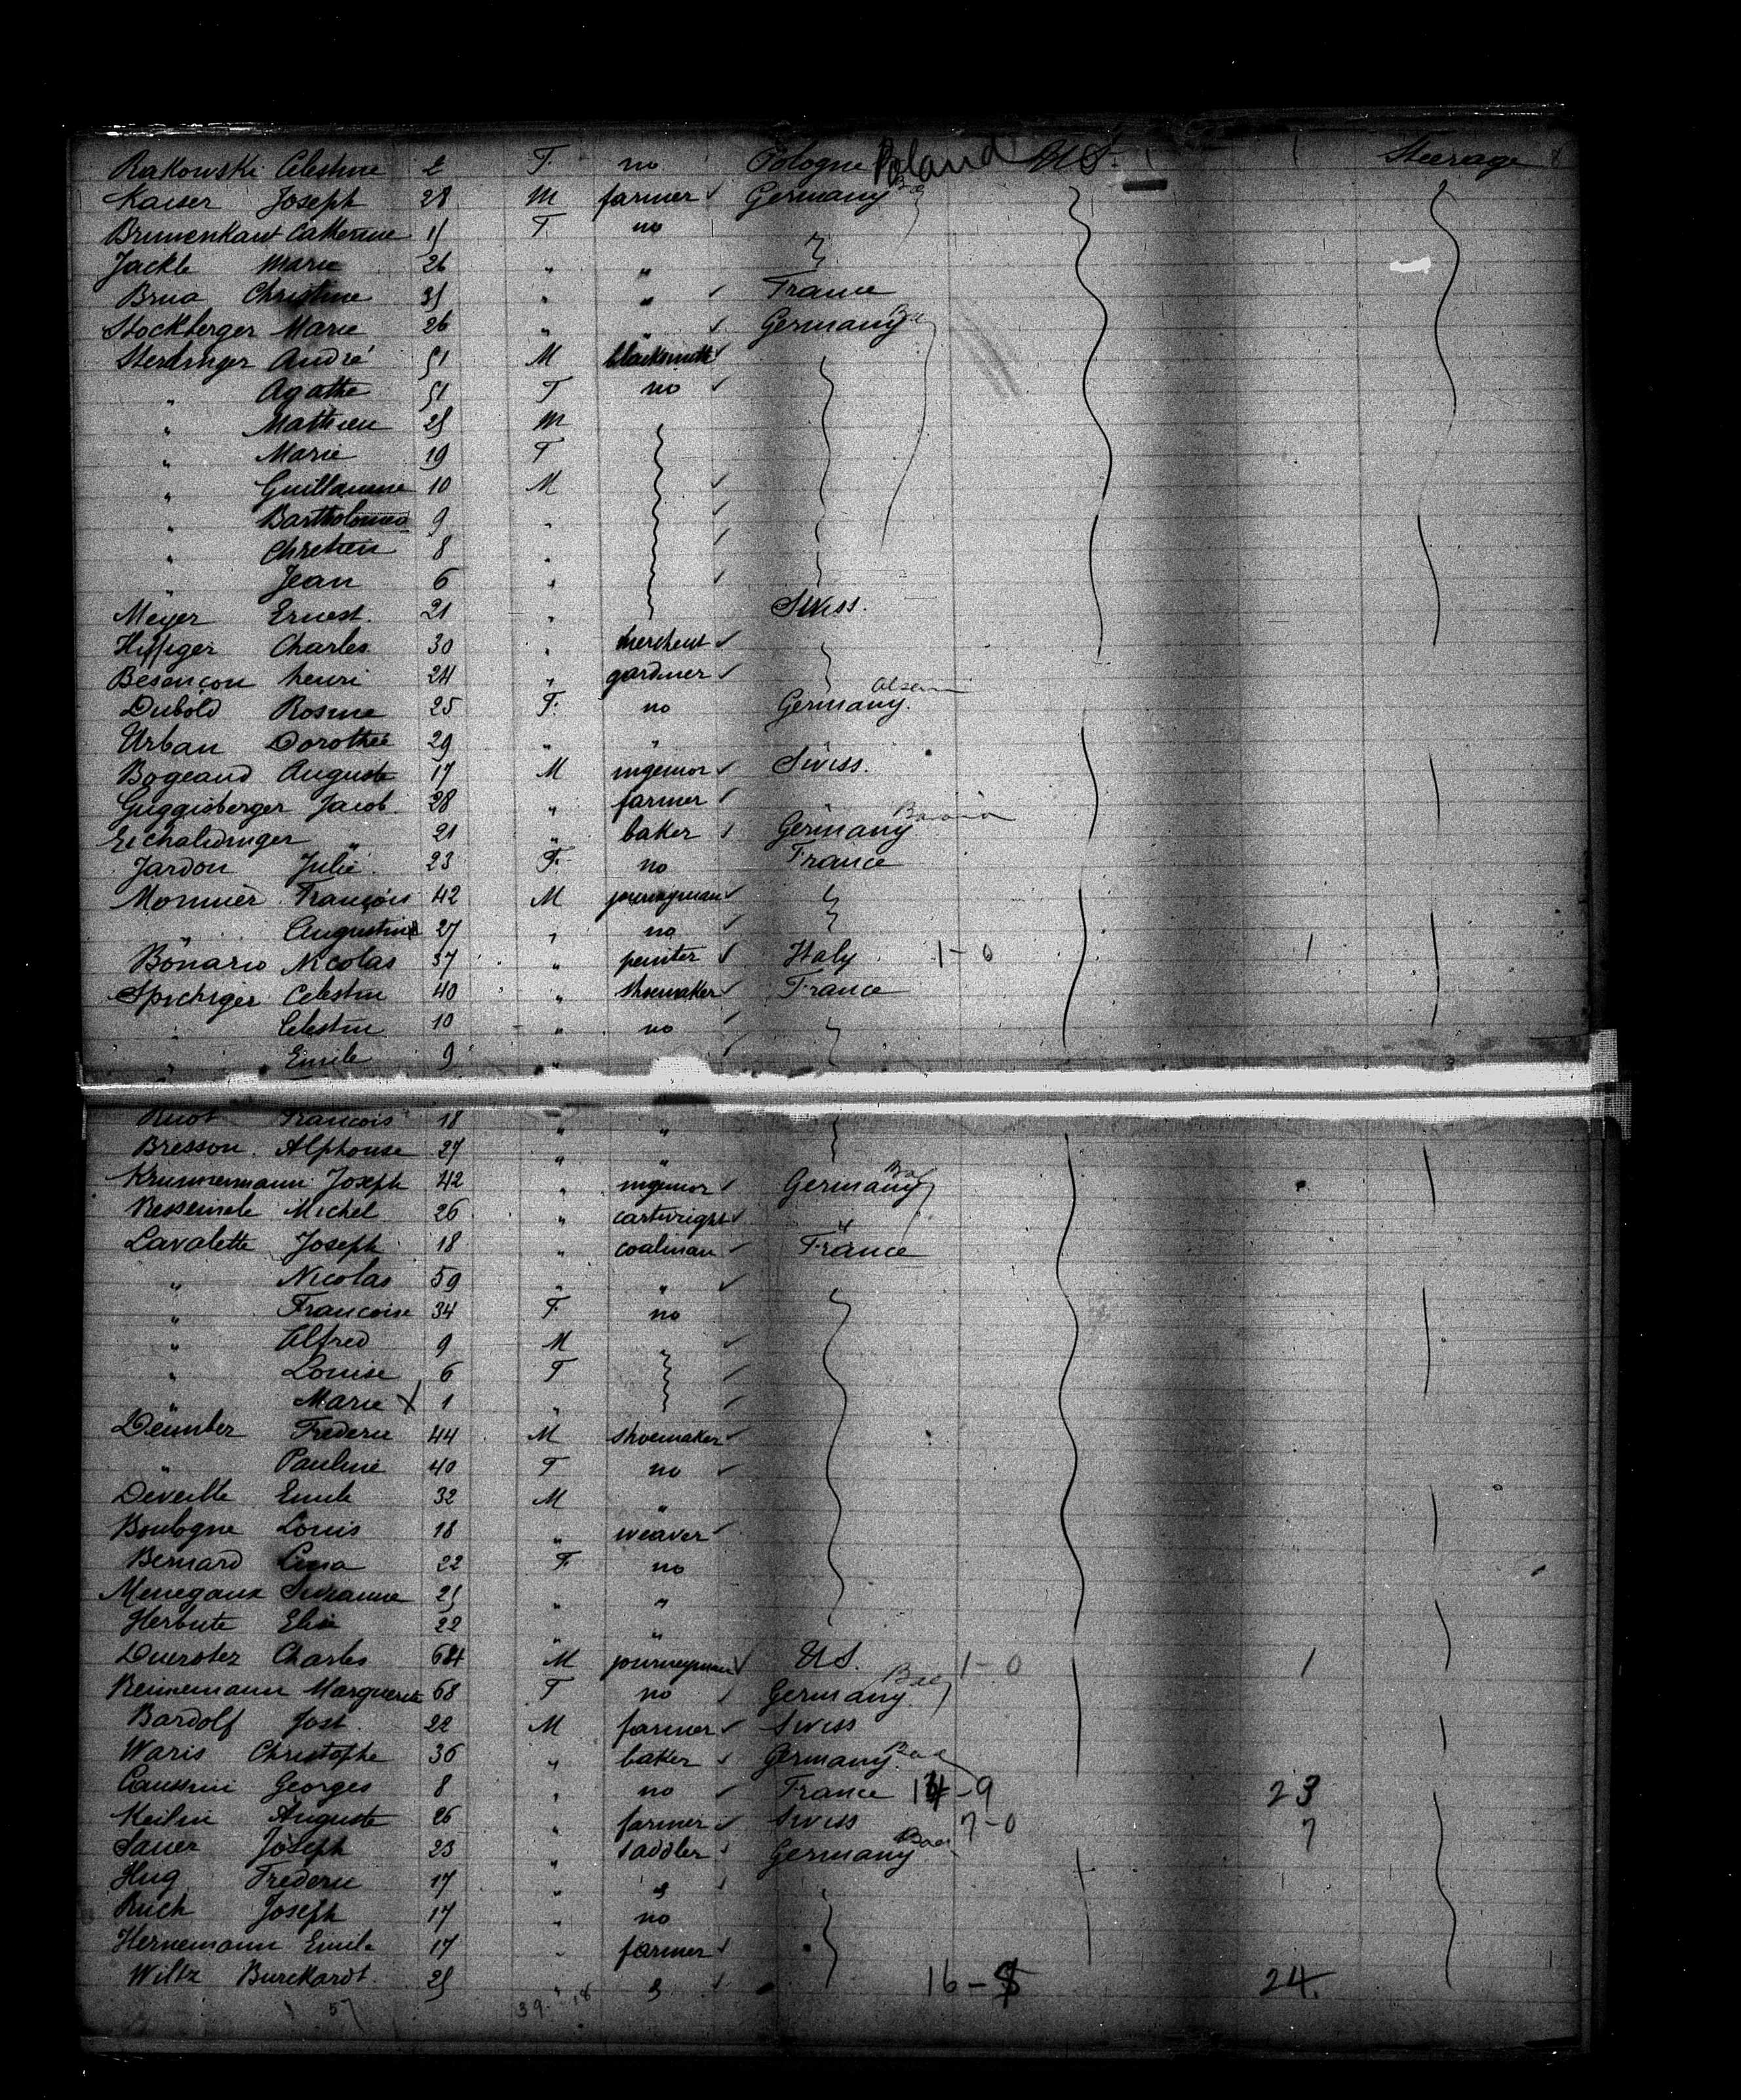 Rakowski Celestine 2 F. no Pologne Poland U.S. Steerage
Kaiser Joseph 28 M farmer ✓ Germany
Catherine F. no
Jackle Marie 26 " "
Brua Christine 35 " " ✓ France
Stockberger Marie 26 " " ✓ Germany
André 51 M blacksmith ✓
" Agathe 51 F no ✓
" Mathieu 25 M
" Marie 19 F
" Guillaume 10 M ✓
" Bartholomeo 9 " ✓
" Chretien 8 " ✓
" Jean 6 " ✓
Meyer Ernest. 21 " Swiss.
Charles 30 " merchent ✓
Besençon henri 24 " gardner ✓
Dubold Rosine 25 F. no Germany.
Urban Dorothée 29 " "
Bogeaud Auguste 17 M ingenior ✓ Swiss.
Guggisberger Jacob. 28 " farmer ✓
" 21 " baker ✓ Germany
Jardon Julie 23 F. no France
Monnier François 42 M journeyman ✓
" Augustine 27 " no ✓
Bonario Nicolas 37 " peinter ✓ Italy 1-0 1
Spichiger Celestin 40 " shoemaker ✓ France
" Celestin 10 " no ✓
" Emile 9 " ✓
François 18 " "
Bresson Alphonse 27 " "
Krummemann Joseph 42 " ingenior ✓ Germany
Michel 26 " cartwright ✓
Lavalette Joseph 18 " coalman ✓ France
" Nicolas 59 " " ✓
" Francoise 34 F. no
" Alfred 9 M ✓
" Louise 6 F ✓
" Marie X 1 " ✓
Frederic 44 M shoemaker ✓
" Pauline 40 F no ✓
Emile 32 M "
Boulogne Louis 18 " weaver ✓
Bernard 22 F. no
Menegaux Suzanne 25 " "
Herbute Elise 22 " "
Charles M journeyman ✓ US. 1-0 1
Marguerite 68 F no ✓ Germany.
Bardolf Jost 22 M farmer ✓ Swiss
Waris Christophe 36 " baker ✓ Germany.
Georges 8 " no ✓ France 14-9 23
Auguste 26 " farmer ✓ Swiss 7-0 7
Sauer Joseph 23 " saddler ✓ Germany
Hug Frederic 17 " " ✓
Ruch Joseph 17 " no
Hernemann Emile 17 " farmer ✓
Wiltz Burckardt. 25 " " ✓ 16-8 24.
57 39 18